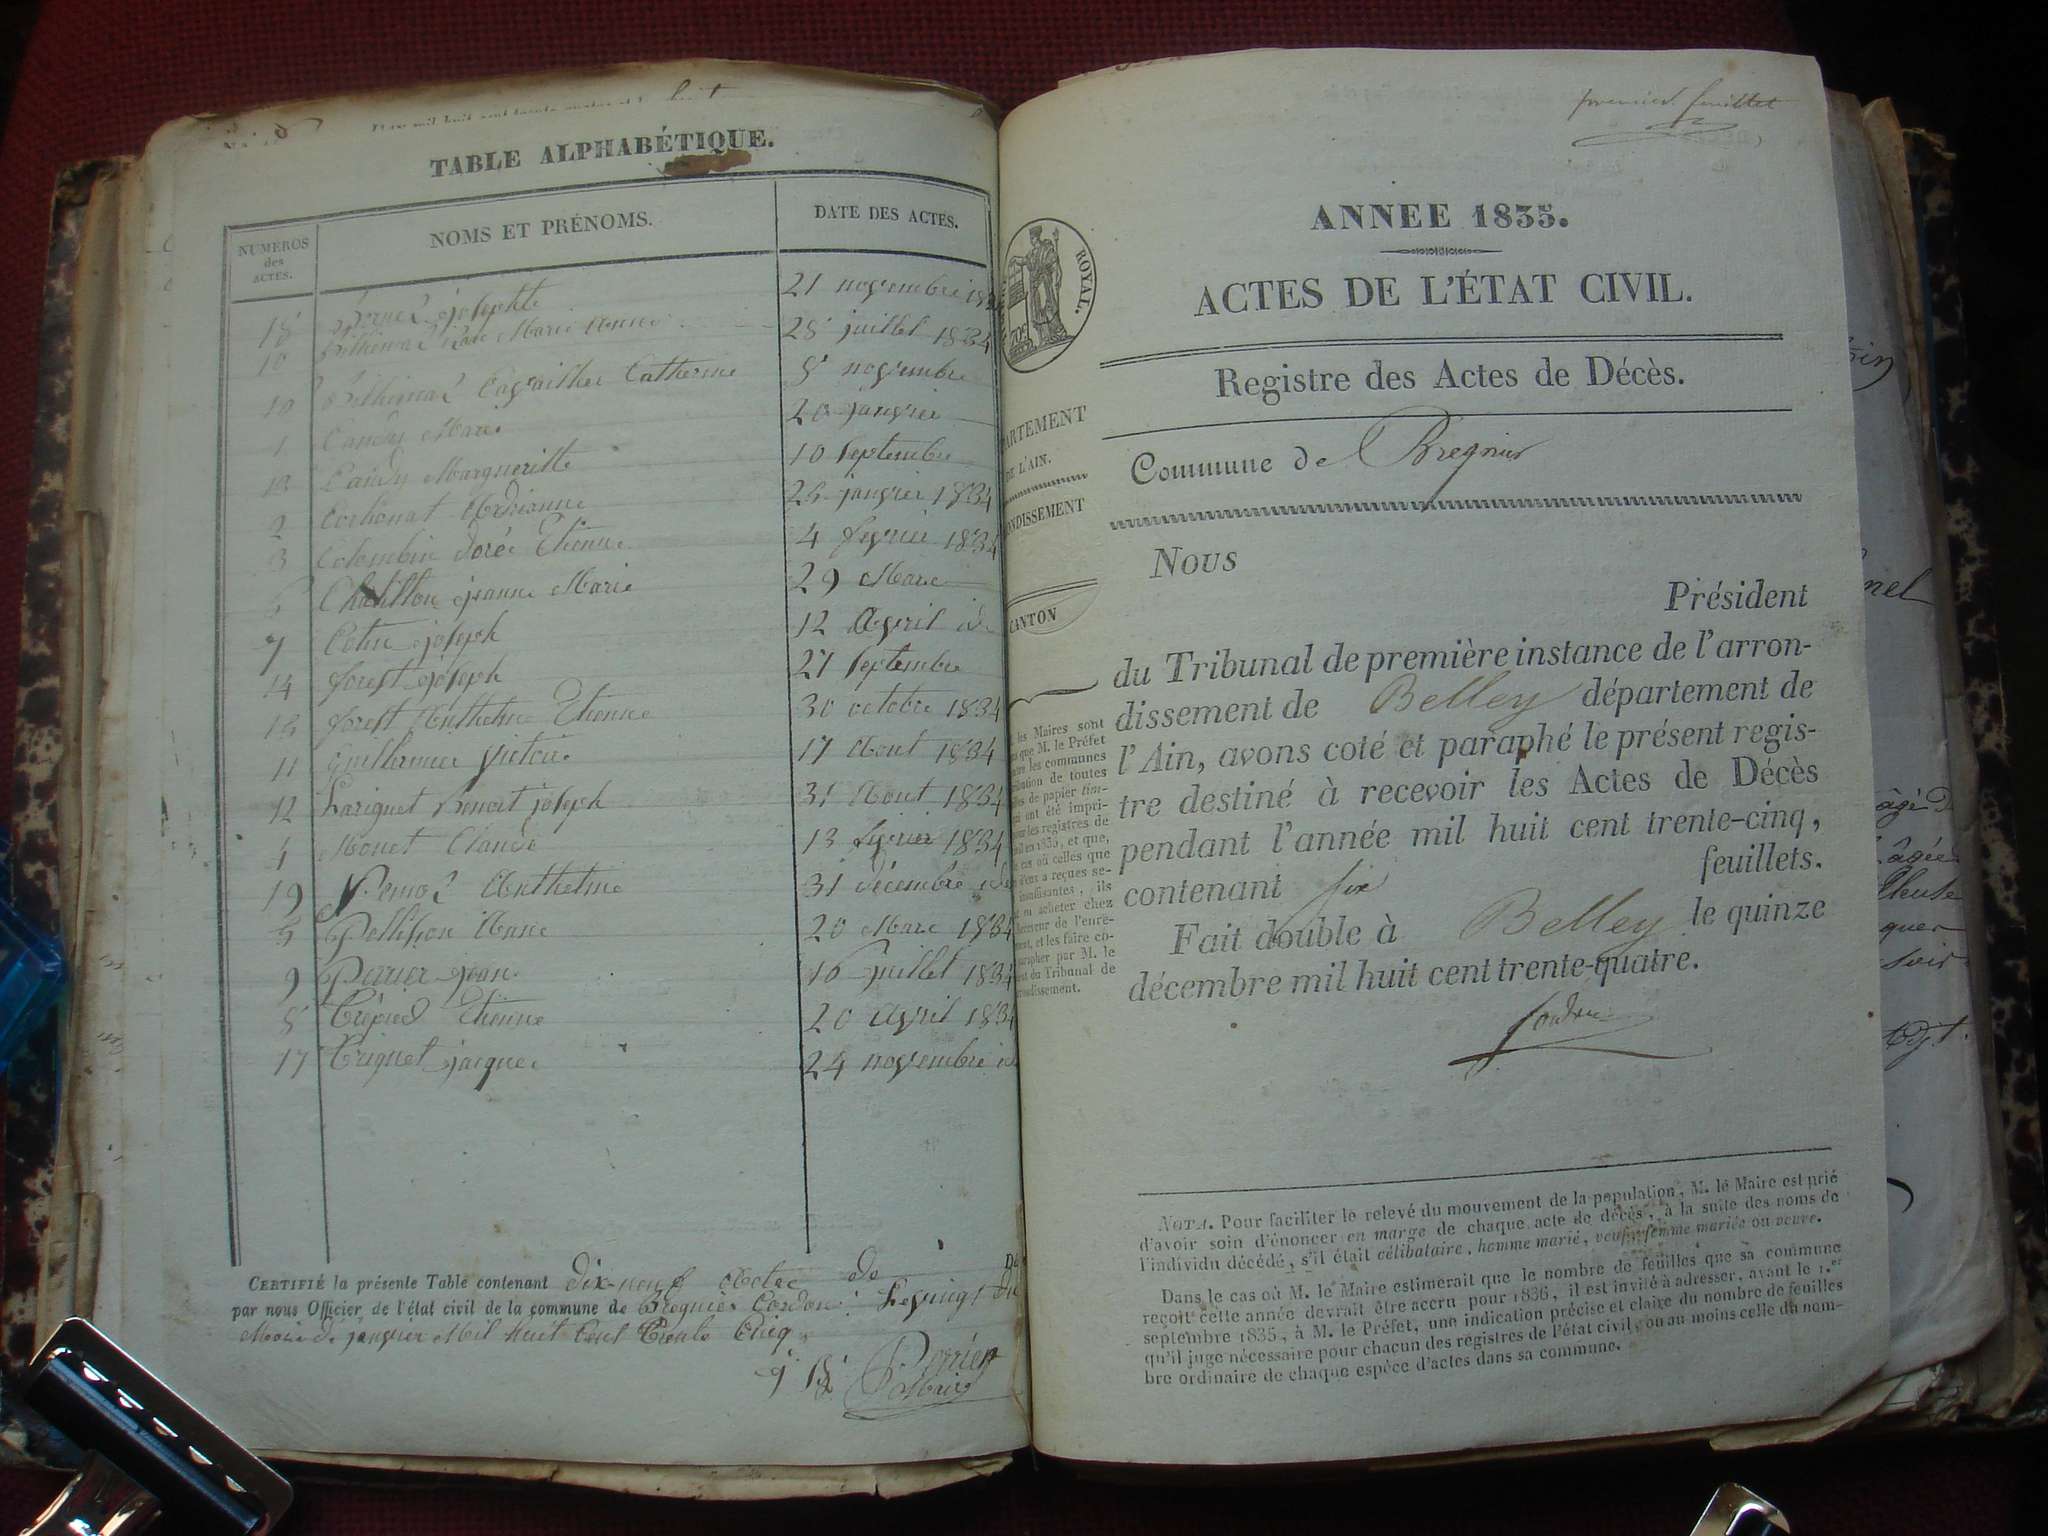 TABLE ALPHABÉTIQUE.
NUMEROS des ACTES.
NOMS ET PRÉNOMS.
DATE DES ACTES.
18 josephte 21 novembre
10 Marie Anne 28 juillet 1834
Catherine 8 novembre
1 Candy Marie 20 janvier
13 Candy Margueritte 10 septembre
2 Corbonat 25 janvier 1834
3 Colombin doré Etienne 4 fevrier 1834
Chatillon jeanne Marie 29 Mars
7 Cotin joseph 12 Avril id
14 forest joseph 27 septembre
15 forest Anthelme Etienne 30 octobre 1834
11 17 Aout 1834
12 Lariguet Benoit joseph 31 Aout 1834
4 Monet Claude 13 1834
19 Anthelme 31 décembre
5 20 Mars 1834
9 Perrier jean 16 juillet 1834
8 Trépied Etienne 20 Avril 1834
17 Triquet jacques 24 novembre id
CERTIFIÉ la présente Table contenant dix-neuf Actes de
par nous Officier de l'état civil de la commune de Bregnier Cordon: Le vingt du
Mois de janvier Mil huit Cent Trente Cinq.
Perrier
Maire
premier feuillet
ROYAL.
ANNEE 1835.
ACTES DE L'ÉTAT CIVIL.
Registre des Actes de Décès.
ARTEMENT
DE L'AIN.
ONDISSEMENT
CANTON
Commune de Bregnier
Nous
Président
du Tribunal de première instance de l'arron-
dissement de Belley département de
l'Ain, avons coté et paraphé le présent regis-
tre destiné à recevoir les Actes de Décès
pendant l'année mil huit cent trente-cinq,
contenant six feuillets.
Fait double à Belley le quinze
décembre mil huit cent trente-quatre.
les Maires sont
que M. le Préfet
les communes
de toutes
de papier tim-
ont été impri-
les registres de
en 1835, et que,
cas où celles que
a reçues se-
insuffisantes, ils
acheter chez
de l'enre-
et les faire co-
parapher par M. le
du Tribunal de
NOTA. Pour faciliter le relevé du mouvement de la population, M. le Maire est prié
d'avoir soin d'énoncer en marge de chaque acte de décès, à la suite des noms de
l'individu décédé, s'il était célibataire, homme marié, veuf, femme mariée ou veuve.
Dans le cas où M. le Maire estimerait que le nombre de feuilles que sa commune
reçoit cette année devrait être accru pour 1836, il est invité à adresser, avant le 1.er
septembre 1835, à M. le Préfet, une indication précise et claire du nombre de feuilles
qu'il juge nécessaire pour chacun des registres de l'état civil, ou au moins celle du nom-
bre ordinaire de chaque espèce d'actes dans sa commune.